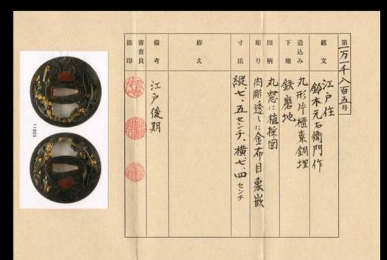 第一万一千八百五号
銘文
江戸住
鈴木元右衛門作
造込み
丸形片櫃素銅埋
下地
鉄磨地
図柄
丸窓に植採図
彫り
肉彫透しに金布目象嵌
寸法
縦七、五センチ、横七、四センチ
称え
備考
江戸後期
審査員
割印
11805